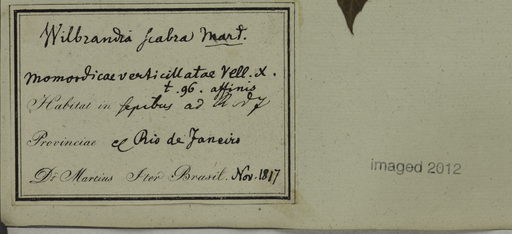 Wilbrandia scabra Mart.
Momordicae verticillatae Vell. X.
t. 96. affinis
Habitat in sepibus ad
Provinciae Rio de Janeiro
Dr. Martius Iter Brasil. Nov. 1817
imaged 2012